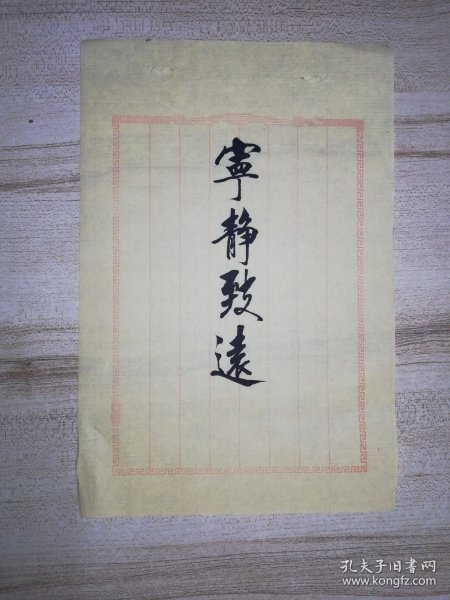 寧静致遠
孔夫子旧书网
www.kongfz.com